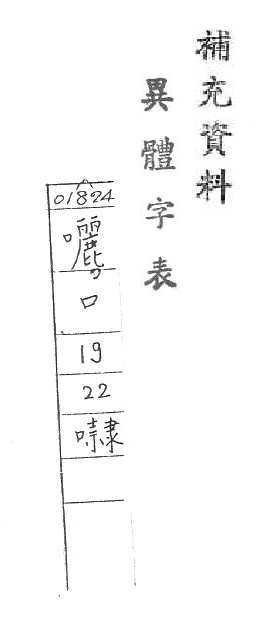 補充資料
異體字表
01824
囇
口
19
22